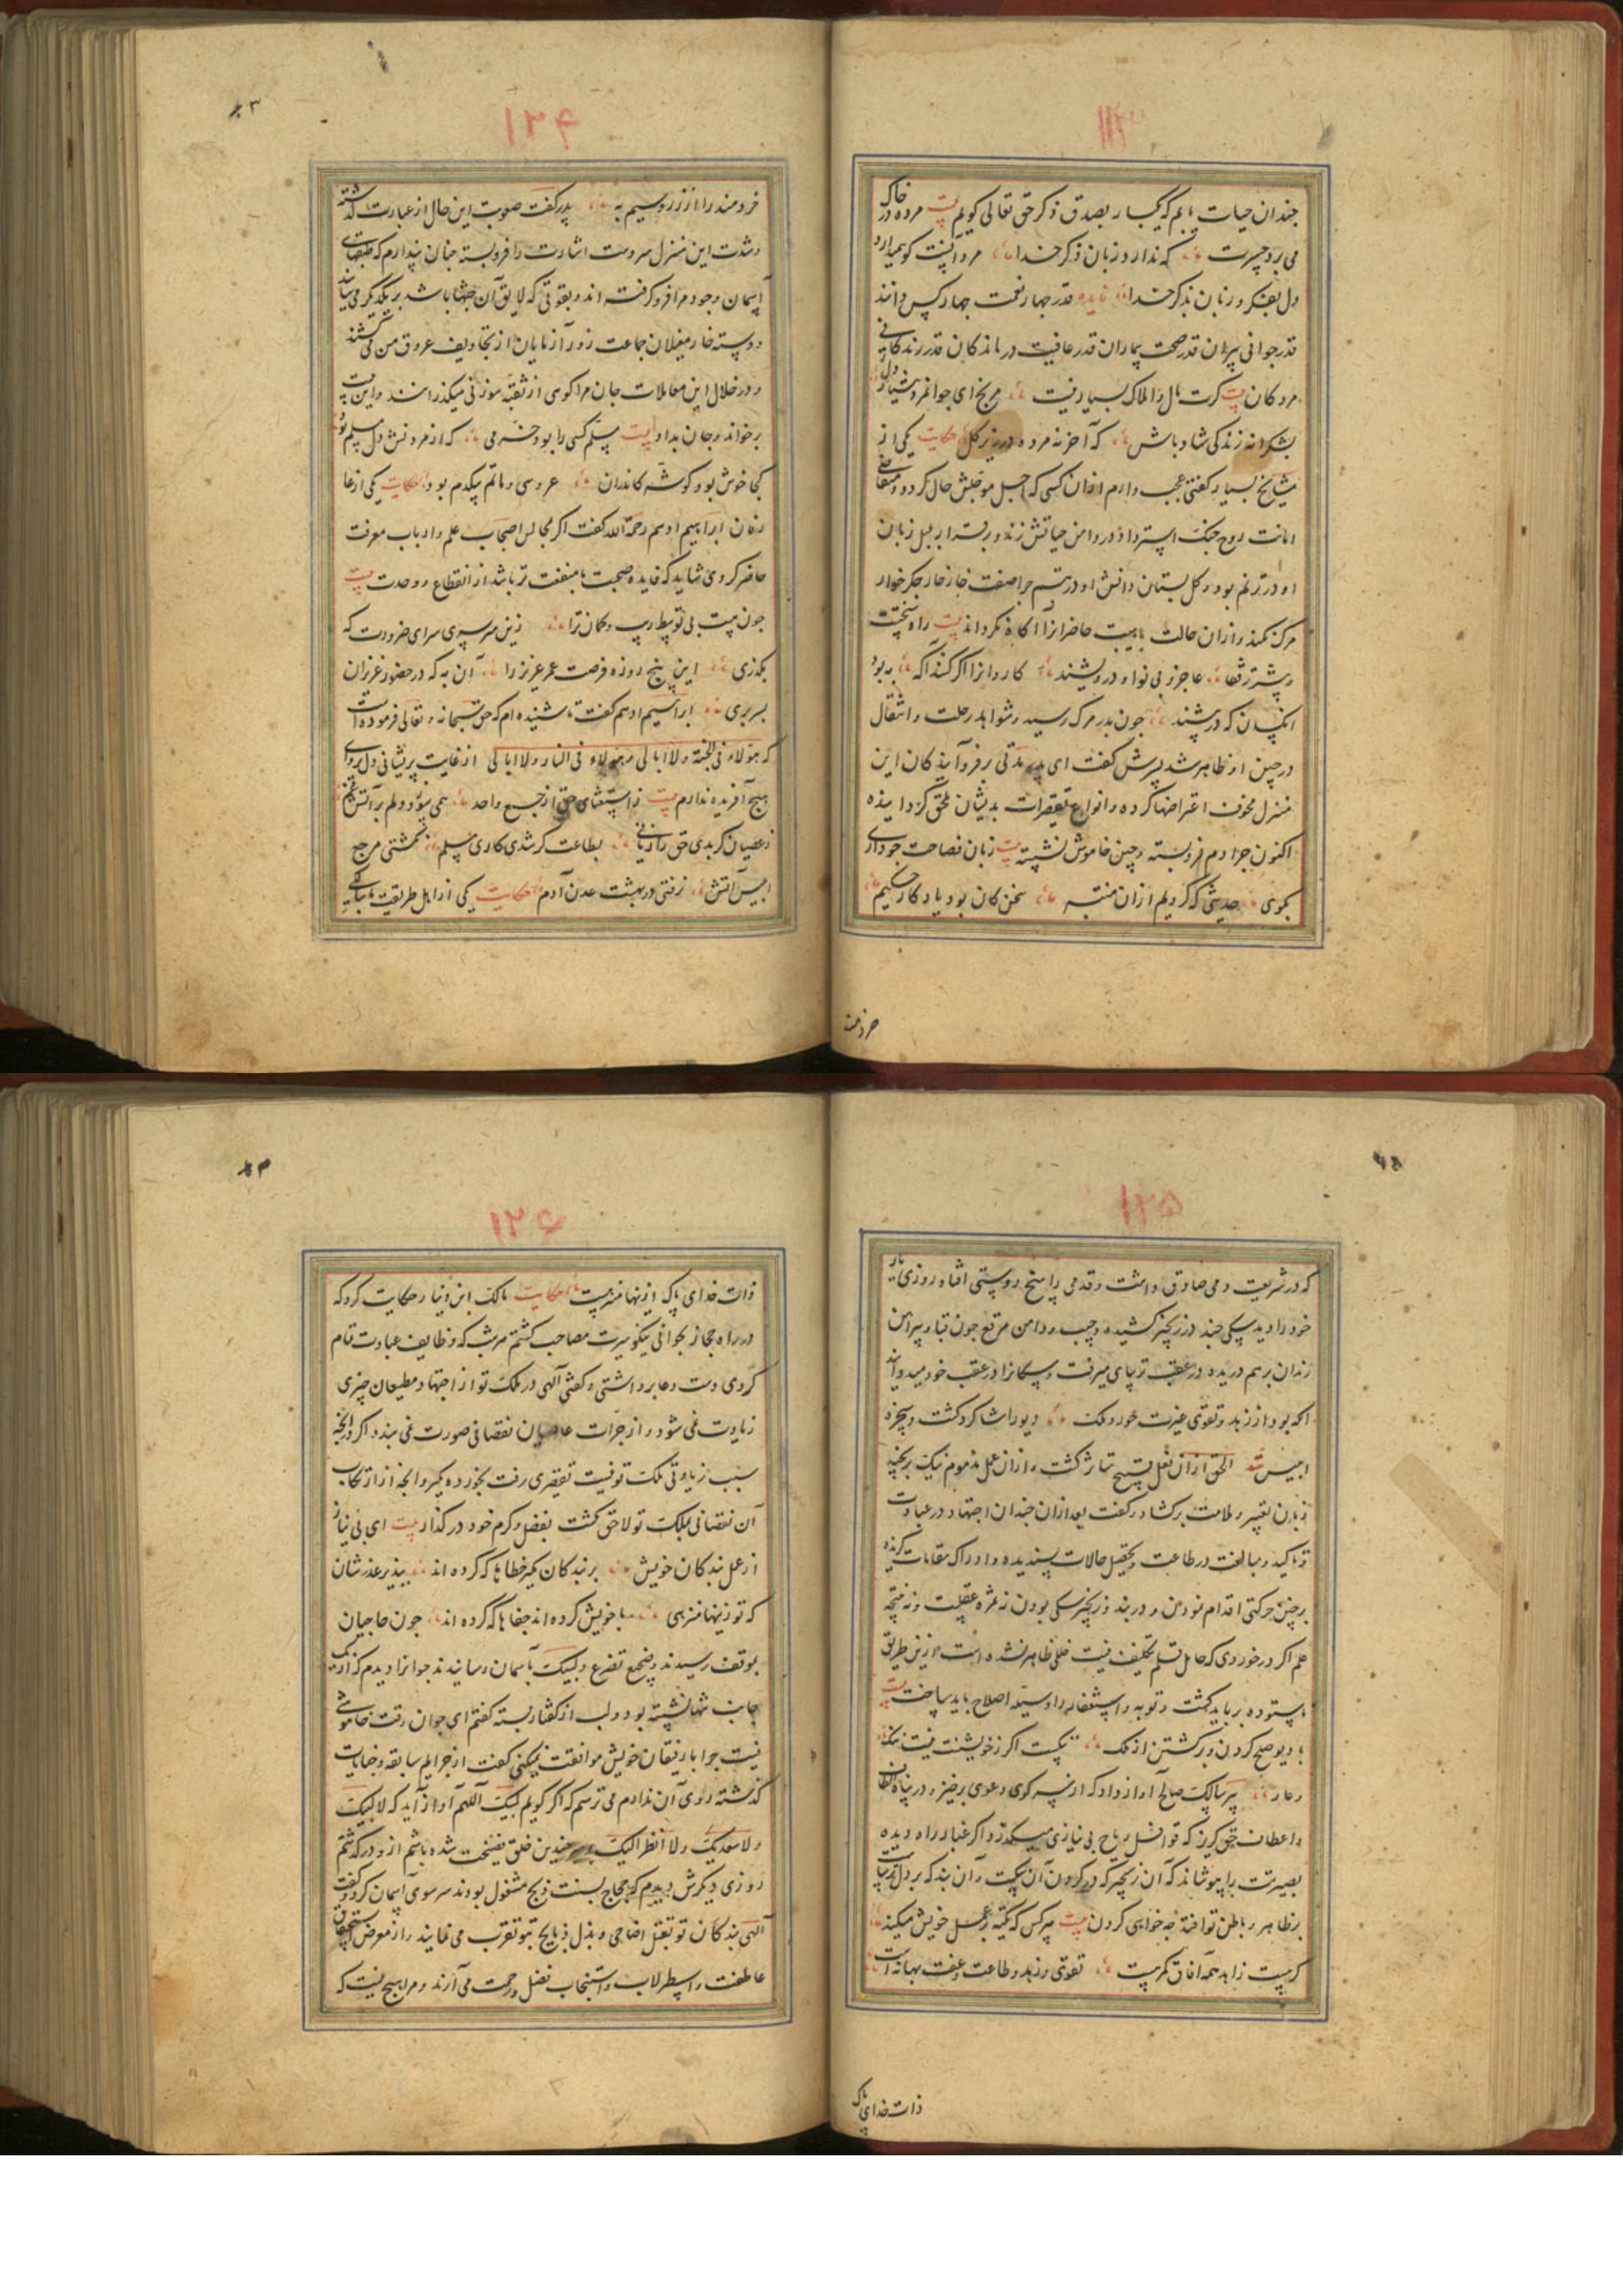 ۱۲۳
چندان حیات یابم که یکبار بصدق ذکر حق تعالی کویم بیت مرده در خاک
می برد حسرت که ندارد زبان ذکر خدا مرد آنست کو همی دارد
دل بفکر و زبان بذکر خدا فایده قدر چهار نعمت چهار کس دانند
قدر جوانی پیران قدر صحت بیماران قدر عافیت درماندکان قدر زندکانی
مردکان بیت کرت مال و املاک بسیار نیست مرنج ای جوانمرد هشیار دل
بشکرانه زندکی شاد باش که آخر نه مرده در زیر کل حکایت یکی از
مشایخ بسیار کفتی عجب دارم ازان کسی که اجل موجلش حال کردد و متقاضی
امانت روح جنک استرداد در دامن حیاتش زند و برقرار بلبل زبان
او در ترنم بود و کل بستان دانش او در تبسم چرا صفت خار خار جکرخوار
مرک نکند و ازان حالت باهیبت حاضرانرا آکاه نکرداند بیت راه سختست
و بیشتر رفقا عاجز و بی نوا و درویشند کاروانرا اکر کند آکه به بود
آنکسان که در پیشند چون پدر مرک رسید و شواهد رحلت و انتقال
درجبین او ظاهر شد پسرش کفت ای پدر مدتی بر فروآیندکان این
منزل مخوف اعتراضها کرده و انواع تقصیرات بدیشان ملحق کردانیده
اکنون چرا دم فروبسته و چنین خاموش نشسته بیت زبان فصاحت چو داری
بکوی حدیثی که کردیم ازان منتبه سخن کان بود یادکار حکیم
خردمند
۱۲۴
خردمند را از زر و سیم به پدر کفت صعوبت این حال از عبارت کذشته
و شدت این منزل سر و دست اشارت را فروبسته چنان پندارم که طبقهای
آسمان وجود مرا فرو کرفته اند و بقوتی که لایق آن جثها باشد بر یکدیکر می سایند
و دسته خار مغیلان جماعت زورآزمایان از تجاویف عروق من می کشند
و در خلال این معاملات جان مرا کوی از ثقبه سوزنی میکذرانند و این بیت
برخواند و جان بداد بیت مسلم کسی را بود خرمی که از مردنش دل مسلم بود
کجا خوش بود کوشه کاندران عروسی و ماتم بیکدم بود حکایت یکی از عا
رفان ابراهیم ادهم رحمه الله کفت اکر مجالس اصحاب علم و ارباب معرفت
حاضر کردی شاید که فایده صحبت با منفعت تر باشد از انقطاع و وحدت بیت
چون نیست بی توسط ریب و کمان ترا زین سرسری سرای ضرورت که
بکذری این پنج روزه فرصت عمر عزیز را آن به که در حضور عزیزان
بسر بری ابراهیم ادهم کفت تا شنیده ام که حق سبحانه و تعالی فرموده است
که هولاء فی الجنة ولا ابالی و هولاء فی النار ولا ابالی از غایت پریشانی دل پروای
هیچ آفریده ندارم بیت ز استغنای حق از جمیع واحد همی سوزد دلم بر آتش غم
ز عصیان کر بدی حق را زیانی بطاعت کر شدی کاری مسلم نکشتی مرجع
ابلیس آتش نرفتی در بهشت عدن آدم حکایت یکی از اهل طریقت با سالکی
۱۲۵
که در شریعت دمی صادق داشت و قدمی راسخ دوستی افتاد روزی یار
خود را دید سکی چند در زنجیر کشیده و جیب و دامن مرقع چون قبا و پیراهن
زندان برهم دریده در عقب ترسای میرفت و سکانرا در عقب خود میدواند
آنکه بود از زهد و تقوی غیرت حور و ملک دیو را شاکرد کشت و سخره
ابلیس شد الحق ازان فعل قبیح متاثر کشت و ازان عمل مذموم نیک برنجید
زبان تعییر و ملامت برکشاد و کفت بعد ازان چندان اجتهاد در عبادت
و تاکید و مبالغت در طاعت و تحصیل حالات پسندیده و ادراک مقامات کزیده
بر چنین حرکتی اقدام نمودن و در بند زنجیر سکی بودن نه ثمره عقلست و نه نتیجه
علم اکر در خردی که حامل قلم تکلیف نیست خللی ظاهر نشده است ازین طریق
ناستوده بر باید کشت و توبه و استغفار را وسیله اصلاح باید ساخت بیت
با دیو صلح کردن و برکشتن از ملک نیکست اکر ز خویشتنت نیست ننک
و عار پیر سالک صالح آواز داد که از سر کوی دعوی برخیز و در پناه الطاف
و اعطاف حق کریز که قوافل ریاح بی نیازی میکذرد اکر غبار راه دیده
بصیرتت را بپوشاند که آن زنجیر که در کردن آن سکست و آن بند که بر دل ترساست
بر ظاهر و باطن تو افتد چه خواهی کردن بیت هر کس که تکیه بر عمل خویش میکند
کر هست زاهد همه آفاق کمرهست تقوی و زهد و طاعت و عفت بهانه است
ذات خدای پاک
۱۲۶
ذات خدای پاک ازینها منزهست حکایت مالک ابن دینار حکایت کرد که
در راه حجاز بجوانی نیکوسیرت مصاحب کشتم هر شب که وظایف عبادت تمام
کردی دست دعا برداشتی و کفتی آلهی در ملک تو از اجتهاد مطیعان چیزی
زیادت نمی شود و از جرات عاصیان نقصانی صورت نمی بندد اکر در آنچه
سبب زیادتی ملک تو نیست تقصیری رفت بخورده مکیر و آنچه از ارتکاب
آن نقصانی بملک تو لاحق نکشت بفضل و کرم خود در کذار بیت ای بی نیاز
از عمل بندکان خویش بر بندکان مکیر خطاها که کرده اند بپذیر عذرشان
که تو زینها منزهی با خویش کرده اند جفاها که کرده اند چون حاجیان
بموقف رسیدند و ضجیع تضرع و لبیک بآسمان رسانیدند جوانرا دیدم که از یک
جانب تنها نشسته بود و لب از کفتار بسته کفتم ای جوان وقت خاموشی
نیست چرا با رفیقان خویش موافقت نمیکنی کفت از جرایم سابقه و خیانات
کذشته روی آن ندارم می ترسم که اکر کویم لبیک اللهم آواز آید که لا لبیک
ولا سعدیک ولا انظر الیک چندین خلق فضیحت شده باشم ازو درکذشتم
روزی دیکرش دیدم که حجاج بسنت ذبح مشغول بودند سر سوی آسمان کرد و کفت
آلهی بندکان تو بقتل اضاحی و بذل ذبایح بتو تقرب می نمایند و از معرض استحقاق
عاطفت و اسطرلاب و استجاب فضل و رحمت می آرند و مرا هیچ نیست که